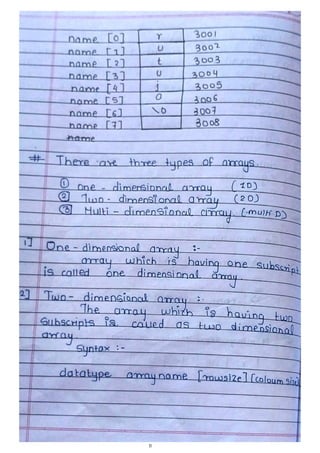 name [0] r 3001
name [1] u 3002
name [2] t 3003
name [3] u 3004
name [4] j 3005
name [5] o 3006
name [6] \0 3007
name [7] 3008
name
# There are three types of arrays.
① one - dimensional array (1D)
② Two - dimensional array (2D)
③ Multi - dimensional array. (-multi D)
1] One - dimensional array :-
array which is having one subscript
is called one dimensional array.
2] Two - dimensional array :-
The array which is having two
subscripts is called as two dimensional
array.
Syntax :-
datatype arrayname [rowsize] [coloum size]